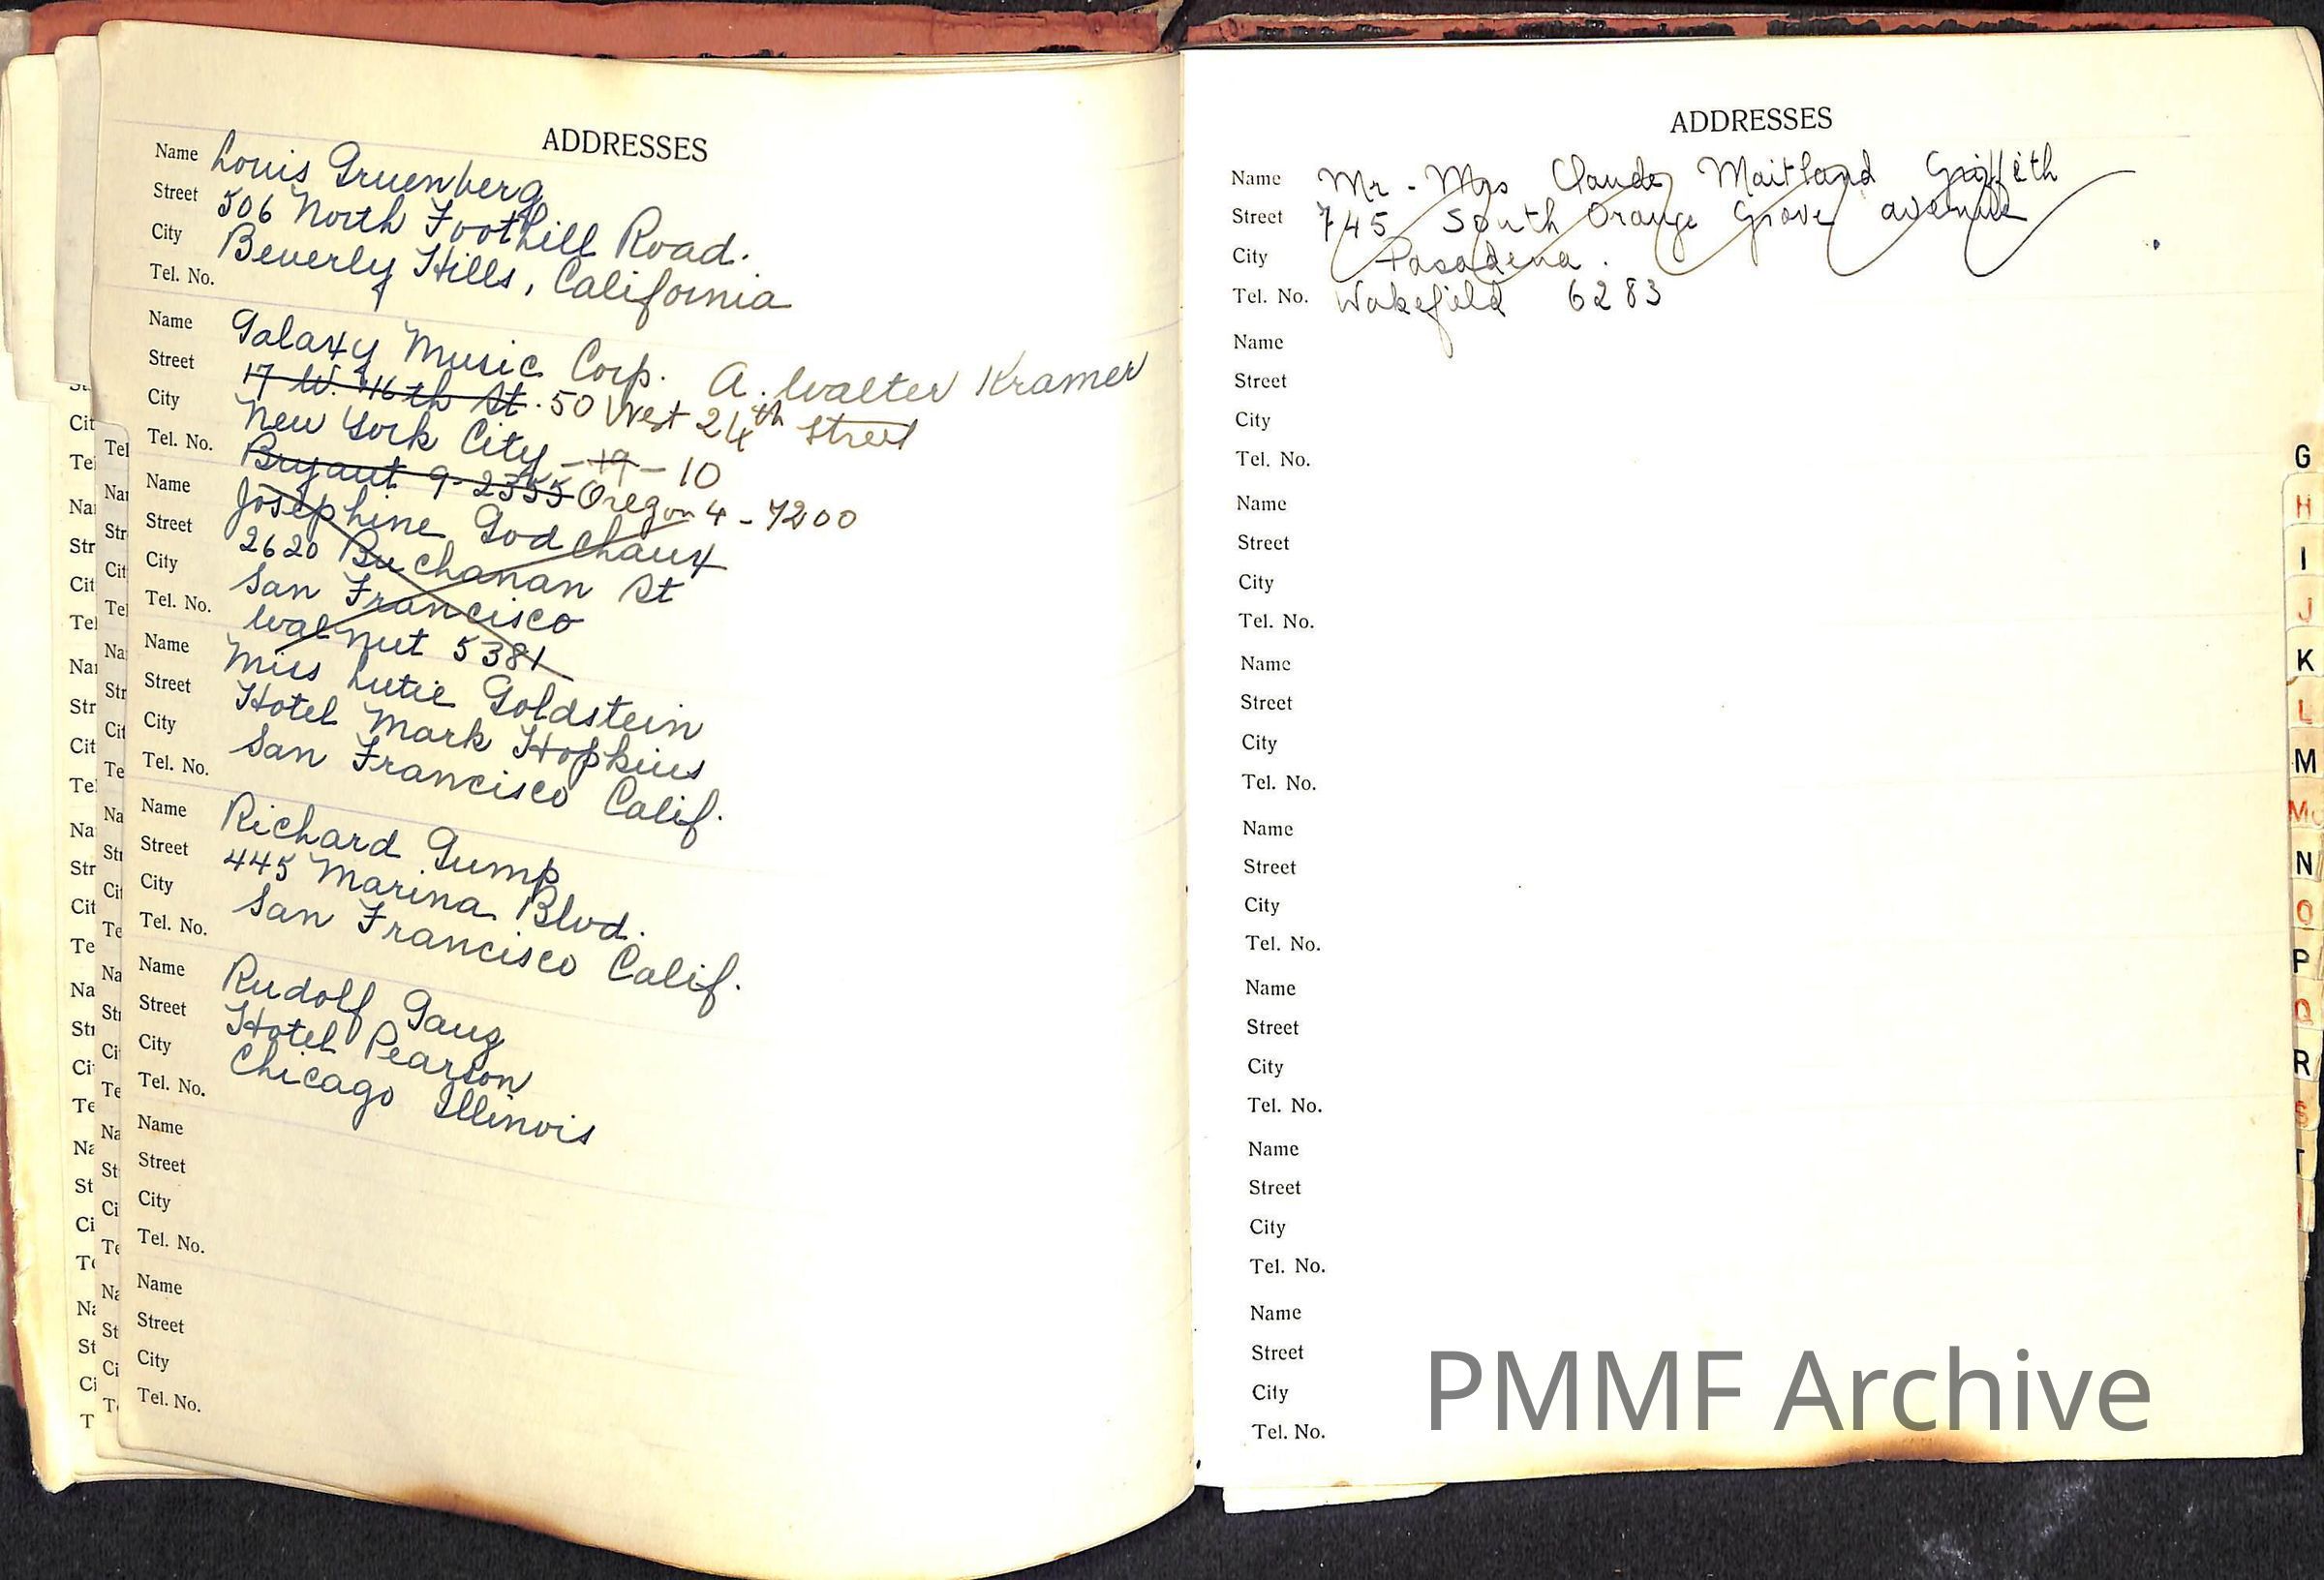 ADDRESSES
Name Louis Gruenberg
Street 506 North Foothill Road.
City Beverly Hills, California
Tel. No.
Name Galaxy Music Corp. A. Walter Kramer
Street 17 W. 46th St. 50 West 24th Street
City New York City - 19 - 10
Tel. No. Bryant 9-2355 Oregon 4-7200
Name Josephine Godchaux
Street 2620 Buchanan St
City San Francisco
Tel. No. Walnut 5381
Name Miss Lutie Goldstein
Street Hotel Mark Hopkins
City San Francisco Calif.
Tel. No.
Name Richard Gump
Street 445 Marina Blvd.
City San Francisco Calif.
Tel. No.
Name Rudolf Ganz
Street Hotel Pearson
City Chicago Illinois
Tel. No.
Name
Street
City
Tel. No.
Name
Street
City
Tel. No.
ADDRESSES
Name Mr - Mrs Claude Maitland Griffith
Street 745 South Orange Grove avenue
City Pasadena.
Tel. No. Wakefield 6283
Name
Street
City
Tel. No.
Name
Street
City
Tel. No.
Name
Street
City
Tel. No.
Name
Street
City
Tel. No.
Name
Street
City
Tel. No.
Name
Street
City
Tel. No.
Name
Street
City
Tel. No.
G
H
I
J
K
L
M
N
O
P
Q
R
S
T
PMMF Archive